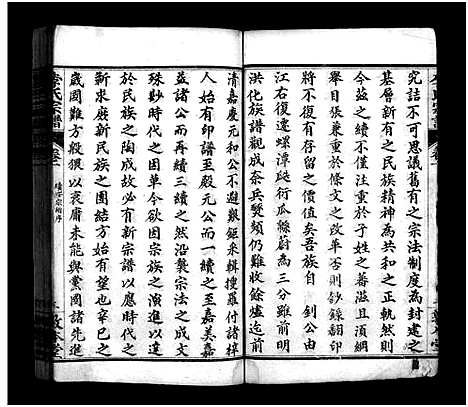 究詰不可思議舊有之宗法制度為封建之
基層新有之民族精神為共和之正軌然則
今茲之續不僅在於子姓之蕃溢且須綱
舉目張兼重於條文之改革否則鈔錄翻印
將不復有存留之價值矣吾族自 釗公由
江右復遷螺潭㲼衍瓜緜蔚為三分雖前明
洪化族譜觀成奈兵燹頻仍難收餘燼迄前
清嘉慶元和公不避艱鉅采輯搜羅付諸梓
人始有印譜甘至殿元公而一續之至嘉美嘉
益諸公而再續三續之然沿襲宗法之成文
殊尠時代之因革今欲因宗族之演進以
於民族之陶成故有新宗譜以應時代並
新宗庭新民族之團結方始有望也辛巳
歲國難方殷眾責庸未能與黨國諸先進
李氏宗譜
卷一
續修宗譜序
敦本堂